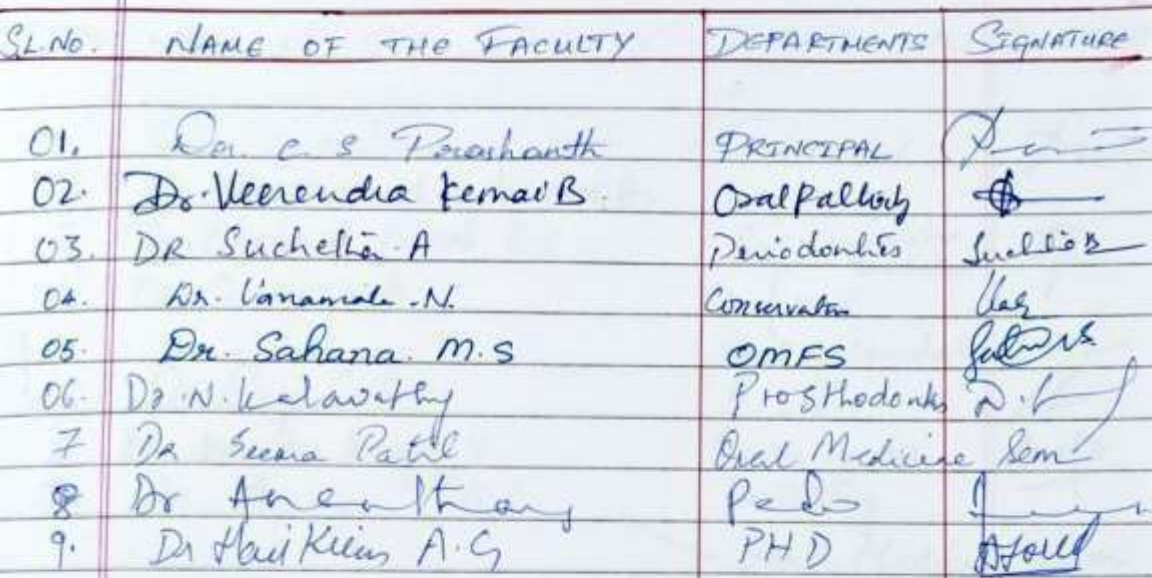 SL.NO. NAME OF THE FACULTY DEPARTMENTS SIGNATURE
01. Dr. C S Prashanth PRINCIPAL
02. Dr. Veerendra Kumar B. Oral Pathology
03. DR Suchetha A Periodontics Suchetha
04. Dr. Vanamala .N. Conservative
05. Dr. Sahana. M.S OMFS
06. Dr. N. Kalavathy Prosthodontics
7 Dr Seema Patil Oral Medicine Sem
8 Dr Pedo
9. Dr A.G PHD